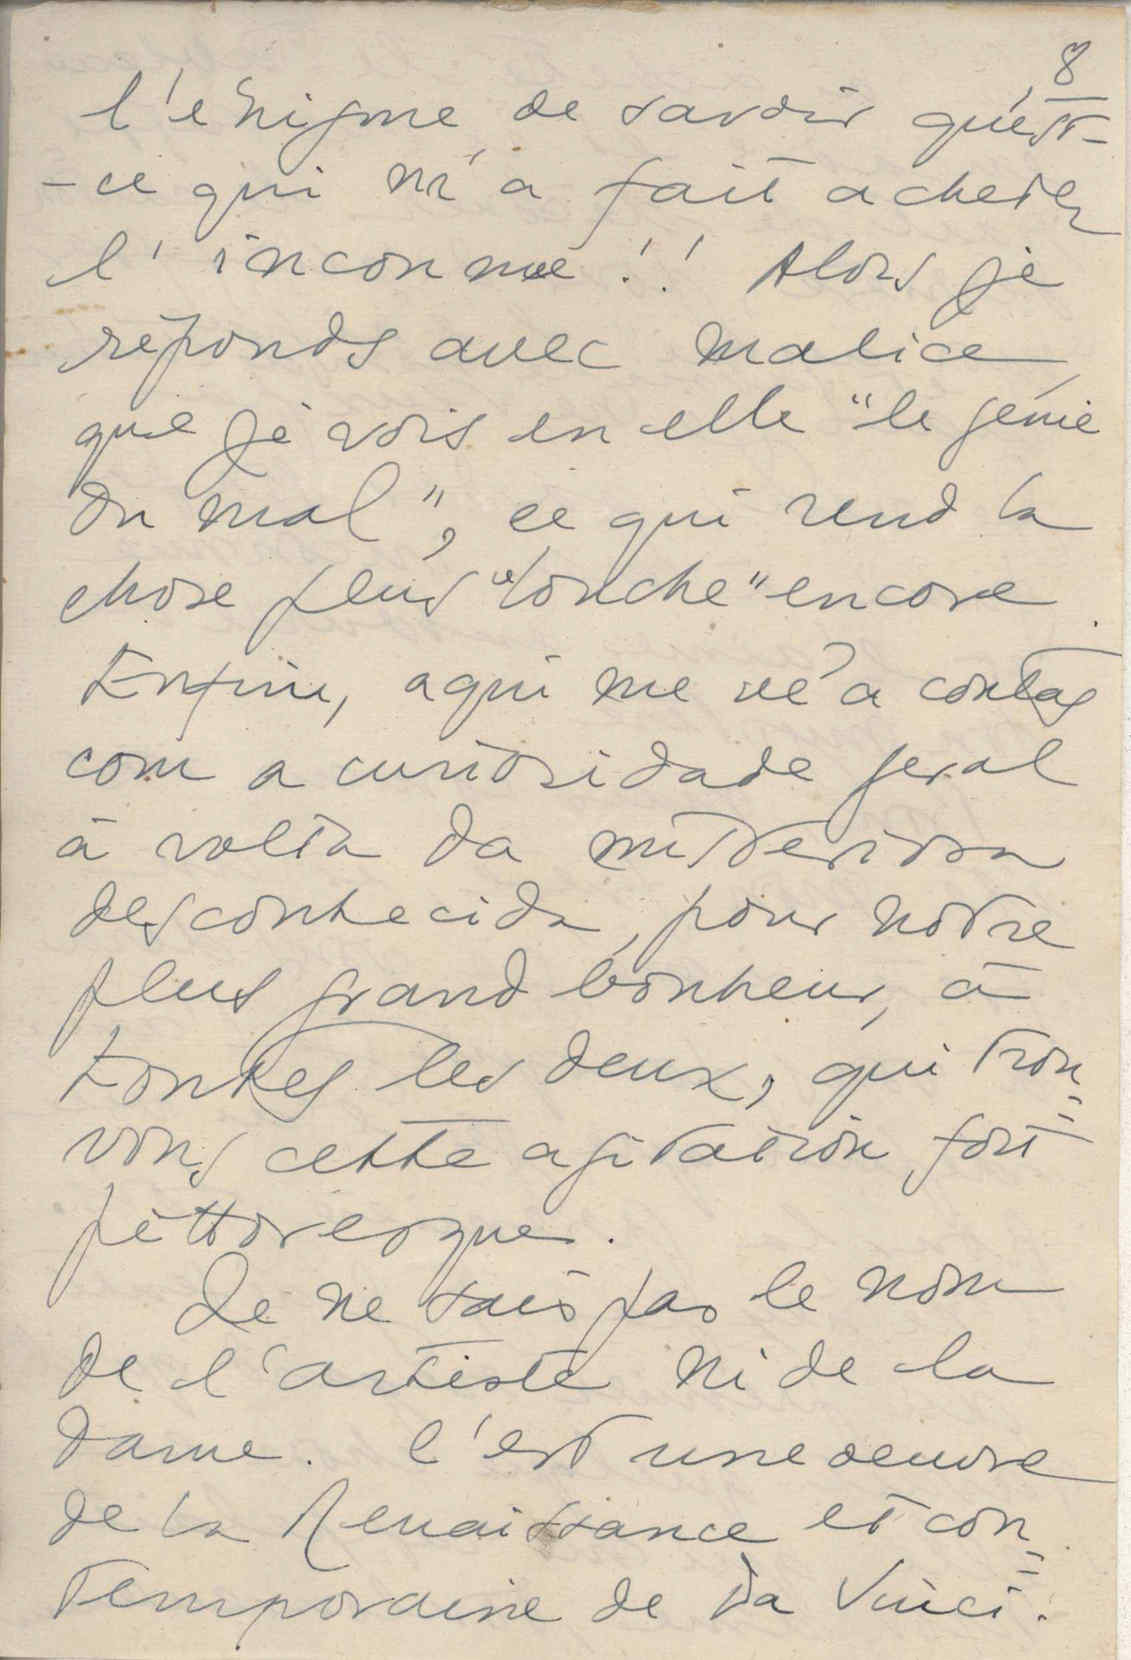 8
l'enigme de savoir qu'est-
-ce qui m'a fait acheter
l'inconnue!! Alors je
réponds avec malice
que je vois en elle "le génie
du mal", ce qui rend la
chose plus "louche" encore.
Enfim, aqui me vê a contas
com a curiosidade geral
à volta da misteriosa
desconhecida, pour notre
plus grand bonheur, à
toutes les deux, qui trou=
vons cette agitation fort
pittoresque.
Je ne sais pas le nom
de l'artiste ni de la
dame. C'est une oeuvre
de la Renaissance et con=
temporaine de Da Vinci.